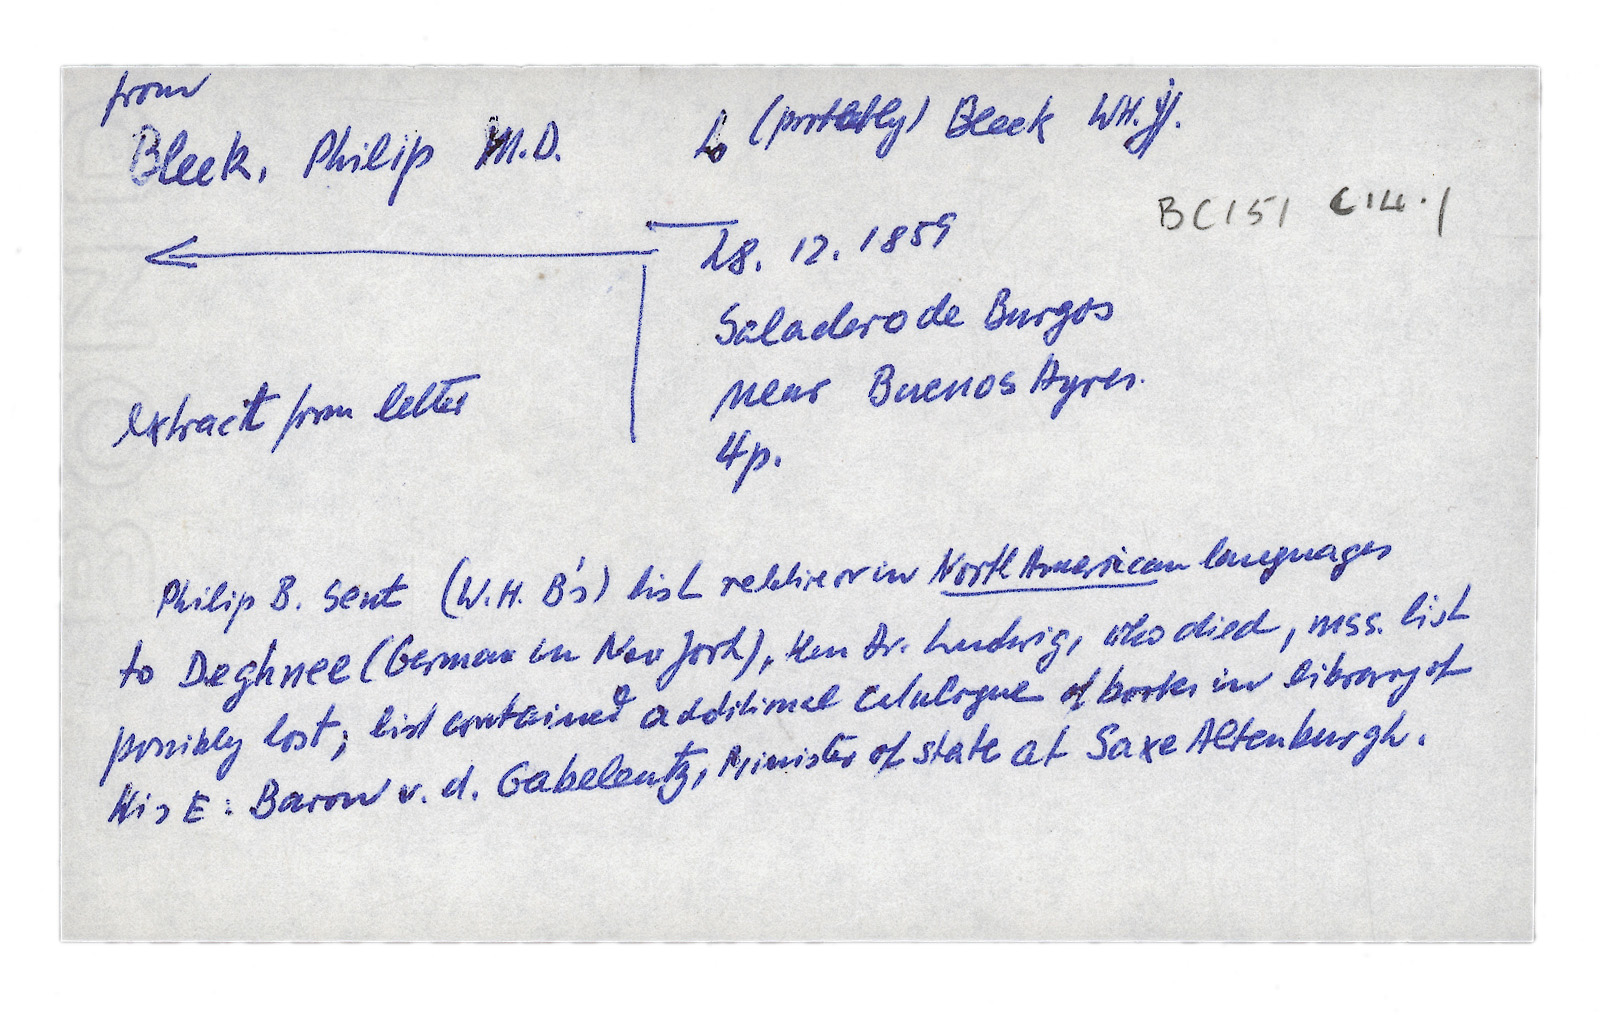 from
Bleek, Philip M.D. to (probably) Bleek W.H.J.
BC151 C14.1
28.12.1859
Saladero de Burgos
near Buenos Ayres.
extract from letter
4p.
Philip B. sent (W.H. B's) list in North American languages
to Deghnee (German in New York), then Dr. Ludwig, who died, mss. list
possibly lost; list contained additional catalogue of books in library of
His E: Baron v. d. Gabelentz, Minister of state at Saxe Altenburgh.